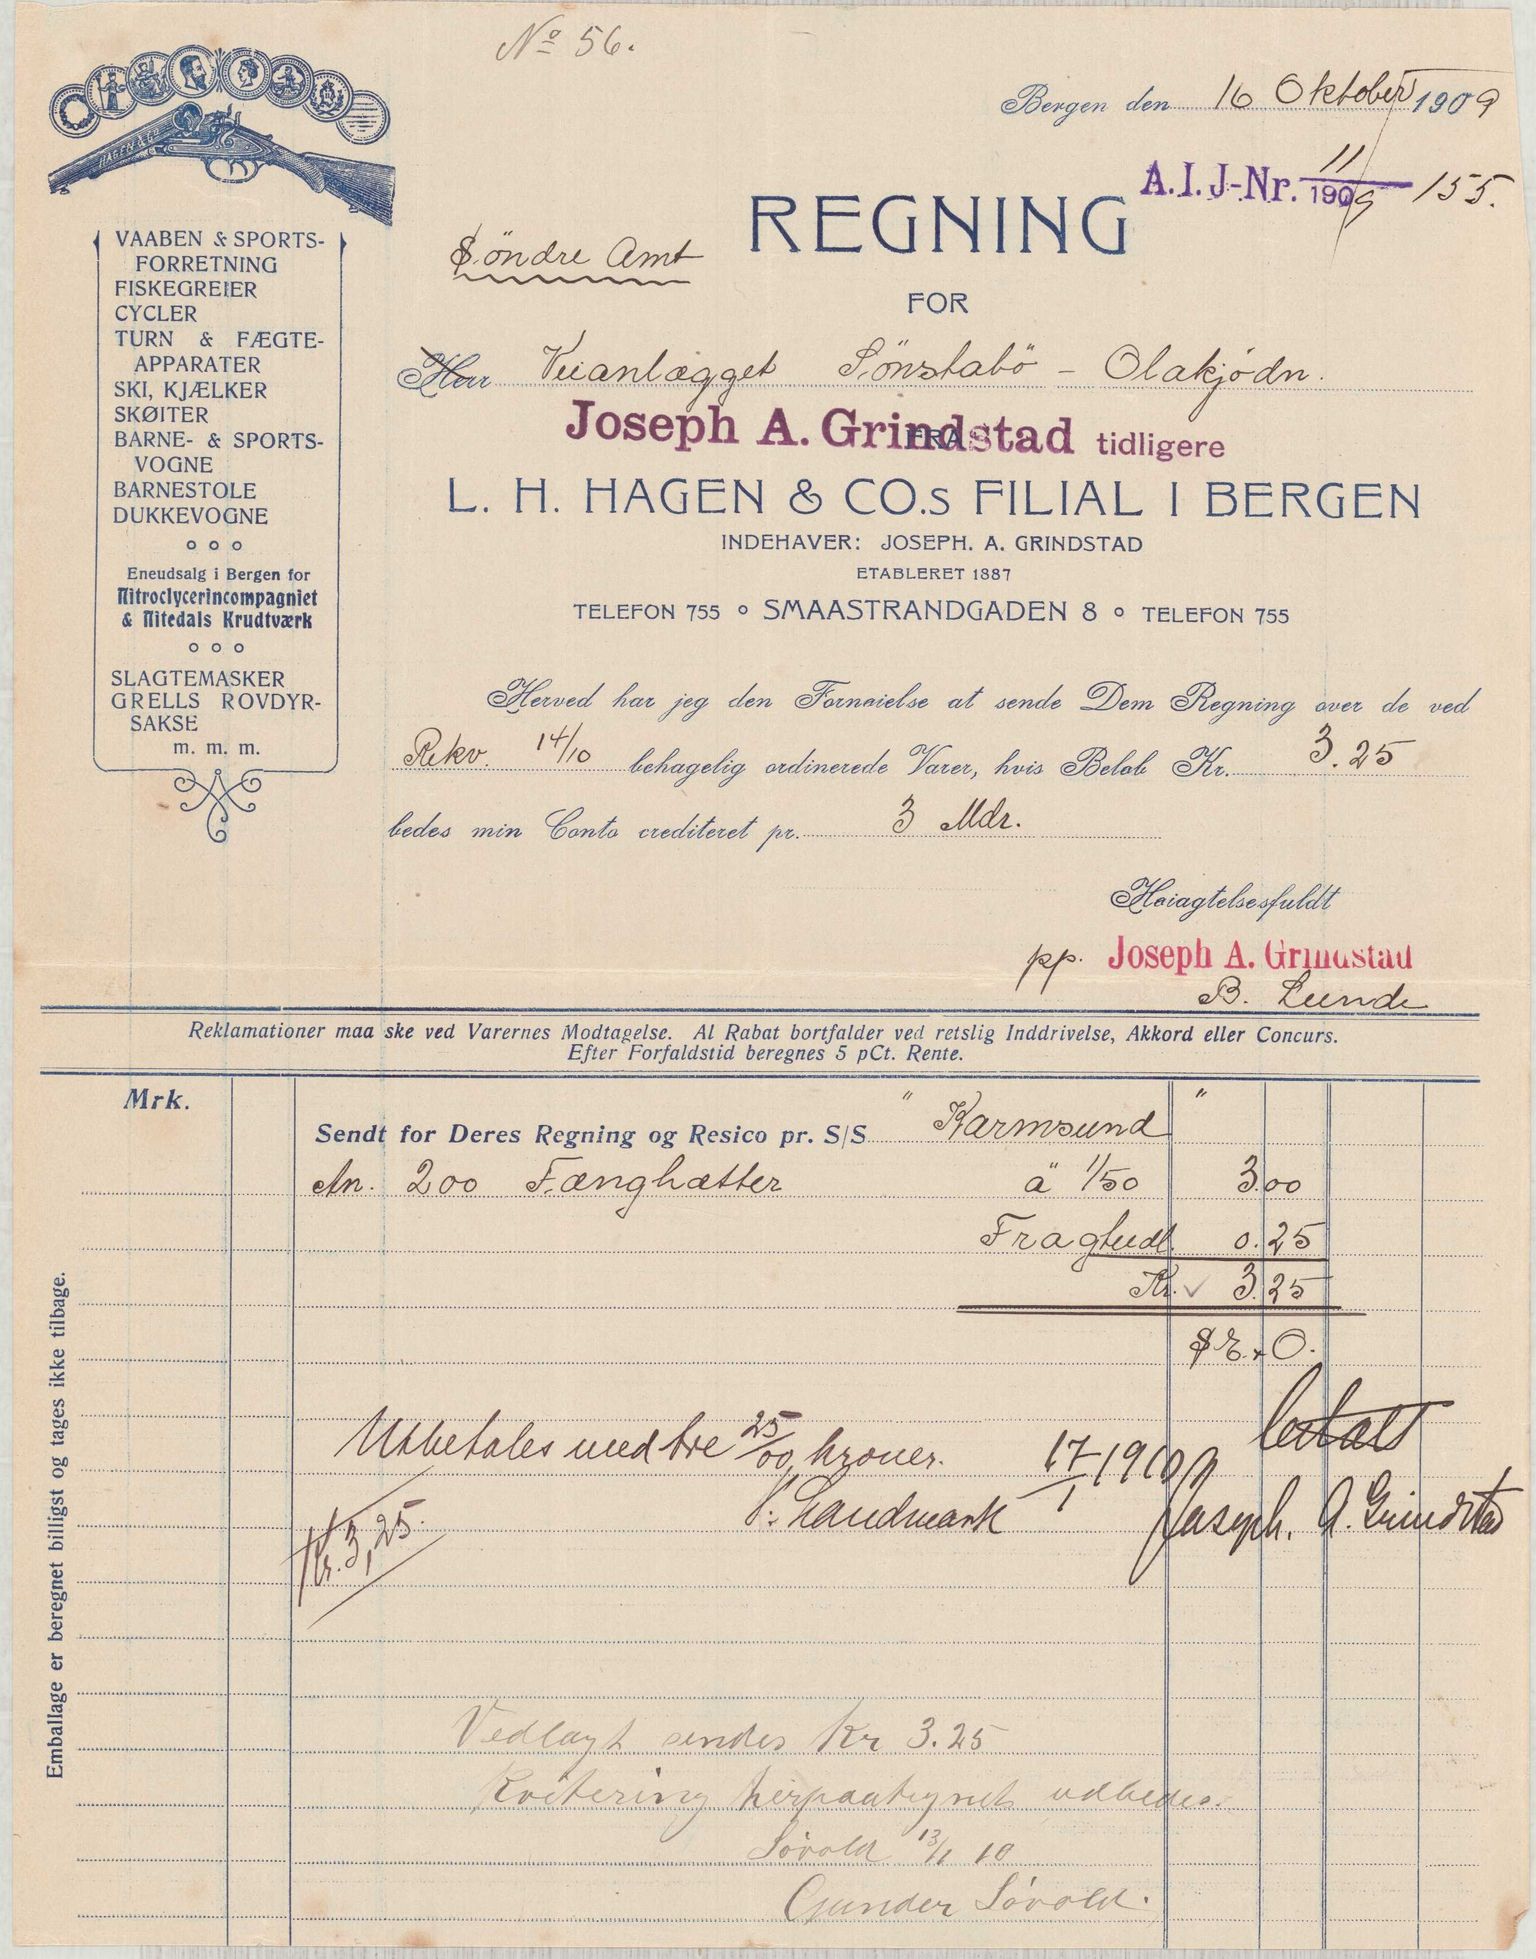 No 56.
Bergen den 16 Oktober 1909
A.I. J-Nr. 11/1909 155.
HAGEN & Co
REGNING
Söndre Amt
FOR
Herr Veianlægget Sönstabö - Olakjödn.
Joseph A. Grindstad tidligere
FRA
L. H. HAGEN & CO.s FILIAL I BERGEN
INDEHAVER: JOSEPH. A. GRINDSTAD
ETABLERET 1887
TELEFON 755 o SMAASTRANDGADEN 8 o TELEFON 755
VAABEN & SPORTS-
FORRETNING
FISKEGREIER
CYCLER
TURN & FÆGTE-
APPARATER
SKI, KJÆLKER
SKØITER
BARNE- & SPORTS-
VOGNE
BARNESTOLE
DUKKEVOGNE
o o o
Eneudsalg i Bergen for
Nitroclycerincompagniet
& Nitedals Krudtværk
o o o
SLAGTEMASKER
GRELLS ROVDYR-
SAKSE
m. m. m.
Herved har jeg den Fornøielse at sende Dem Regning over de ved
Rekv. 14/10 behagelig ordinerede Varer, hvis Beløb Kr. 3.25
bedes min Conto crediteret pr. 3 Mdr.
Høiagtelsesfuldt
pp. Joseph A. Grindstad
B. Lunde
Reklamationer maa ske ved Varernes Modtagelse. Al Rabat bortfalder ved retslig Inddrivelse, Akkord eller Concurs.
Efter Forfaldstid beregnes 5 pCt. Rente.
Mrk.
Sendt for Deres Regning og Resico pr. S/S " Karmsund "
An. 200 Fænghætter ä 1/50 3.00
Fragtudl. 0.25
Kr. 3.25
S E. & O.
Udbetales med tre 25/00 kroner. 17/1 1910 betalt
Landmark Joseph. A. Grindstad
Kr. 3,25.
Vedlagt sendes Kr 3.25
Kvitering herpaategnet udbedes.
Lövold 13/1 10
Gunder Lövold.
Emballage er beregnet billigst og tages ikke tilbage.